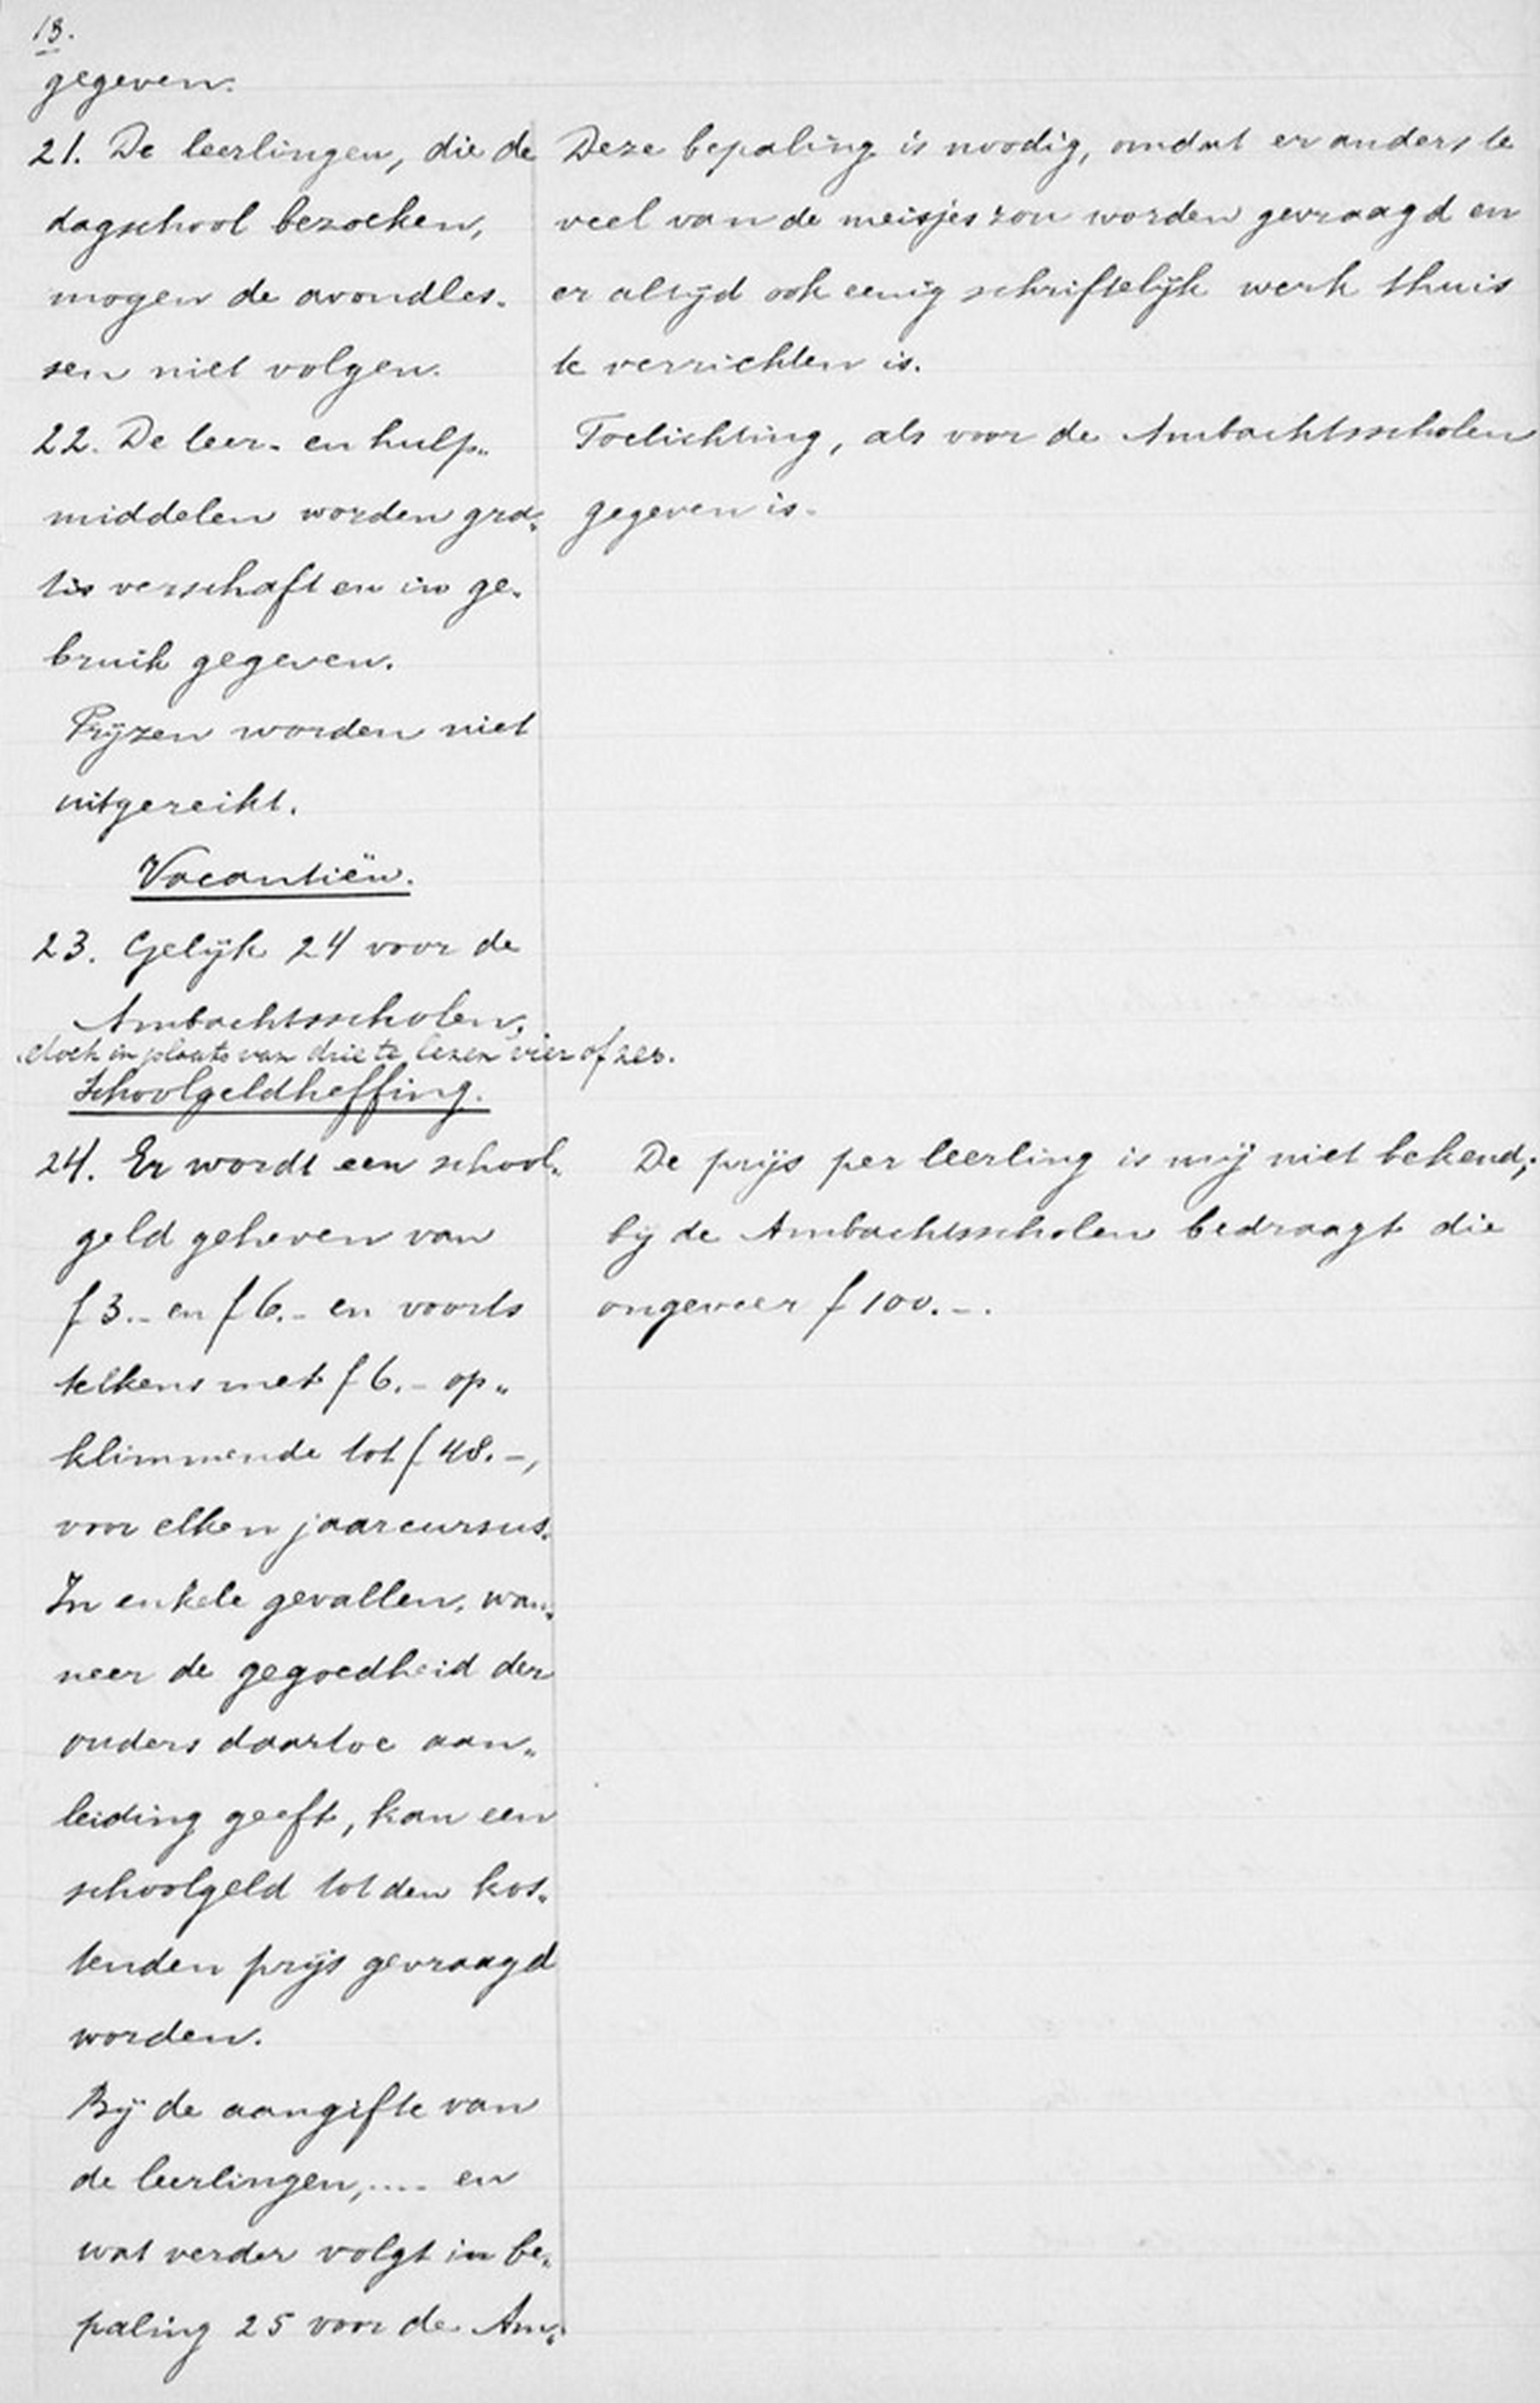 13.
gegeven.
21. De leerlingen, die de
dagschool bezoeken,
mogen de avondles-
sen niet volgen.
Deze bepaling is noodig, omdat er anders te
veel van de meisjes zou worden gevraagd en
er altijd ook eenig schriftelijk werk thuis
te verrichten is.
22. De leer- en hulp-
middelen worden gra-
tis verschaft en in ge-
bruik gegeven.
Prijzen worden niet
uitgereikt.
Toelichting, als voor de Ambachtsscholen
gegeven is.
Vacantiën.
23. Gelijk 24 voor de
Ambachtsscholen,
doch in plaats van drie te lezen vier of zes.
Schoolgeldheffing.
24. Er wordt een school-
geld geheven van
f 3.- en f 6.- en voorts
telkens met f 6.- op-
klimmende tot f 48.-,
voor elken jaarcursus.
In enkele gevallen, wan-
neer de gegoedheid der
ouders daartoe aan-
leiding geeft, kan een
schoolgeld tot den kos-
tenden prijs gevraagd
worden.
Bij de aangifte van
de leerlingen,.... en
wat verder volgt in be-
paling 25 voor de Am-
De prijs per leerling is mij niet bekend;
bij de Ambachtsscholen bedraagt die
ongeveer f 100.-.